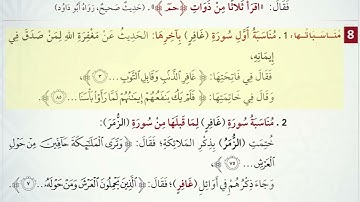 فَقَالَ: «اقْرَأْ ثَلَاثًا مِنْ ذَوَاتِ ﴿حمٓ﴾». (حَدِيثٌ صَحِيحٌ، رَوَاهُ أَبُو دَاوُد)
8 مُنَاسَبَاتُهَا: 1. مُنَاسَبَةُ أَوَّلِ سُورَةِ (غَافِرٍ) بِآخِرِهَا: الحَدِيثُ عَنْ مَغْفِرَةِ اللهِ لِمَنْ صَدَقَ فِي
إِيمَانِهِ،
فَقَالَ فِي فَاتِحَتِهَا: ﴿غَافِرِ ٱلذَّنۢبِ وَقَابِلِ ٱلتَّوۡبِ... ٣﴾،
وَقَالَ فِي خَاتِمَتِهَا: ﴿فَلَمۡ يَكُ يَنفَعُهُمۡ إِيمَٰنُهُمۡ لَمَّا رَأَوۡاْ بَأۡسَنَا... ٨٥﴾.
2. مُنَاسَبَةُ سُورَةِ (غَافِرٍ) لِمَا قَبْلَهَا مِنْ سُورَةِ (الزُّمَرِ):
خُتِمَتِ (الزُّمَرُ) بِذِكْرِ المَلَائِكَةِ؛ فَقَالَ: ﴿وَتَرَى ٱلۡمَلَٰٓئِكَةَ حَآفِّينَ مِنۡ حَوۡلِ
ٱلۡعَرۡشِ... ٧٥﴾،
وَجَاءَ ذِكْرُهُمْ فِي أَوَائِلِ (غَافِرٍ)؛ فَقَالَ: ﴿ٱلَّذِينَ يَحۡمِلُونَ ٱلۡعَرۡشَ وَمَنۡ حَوۡلَهُۥ... ٧﴾.